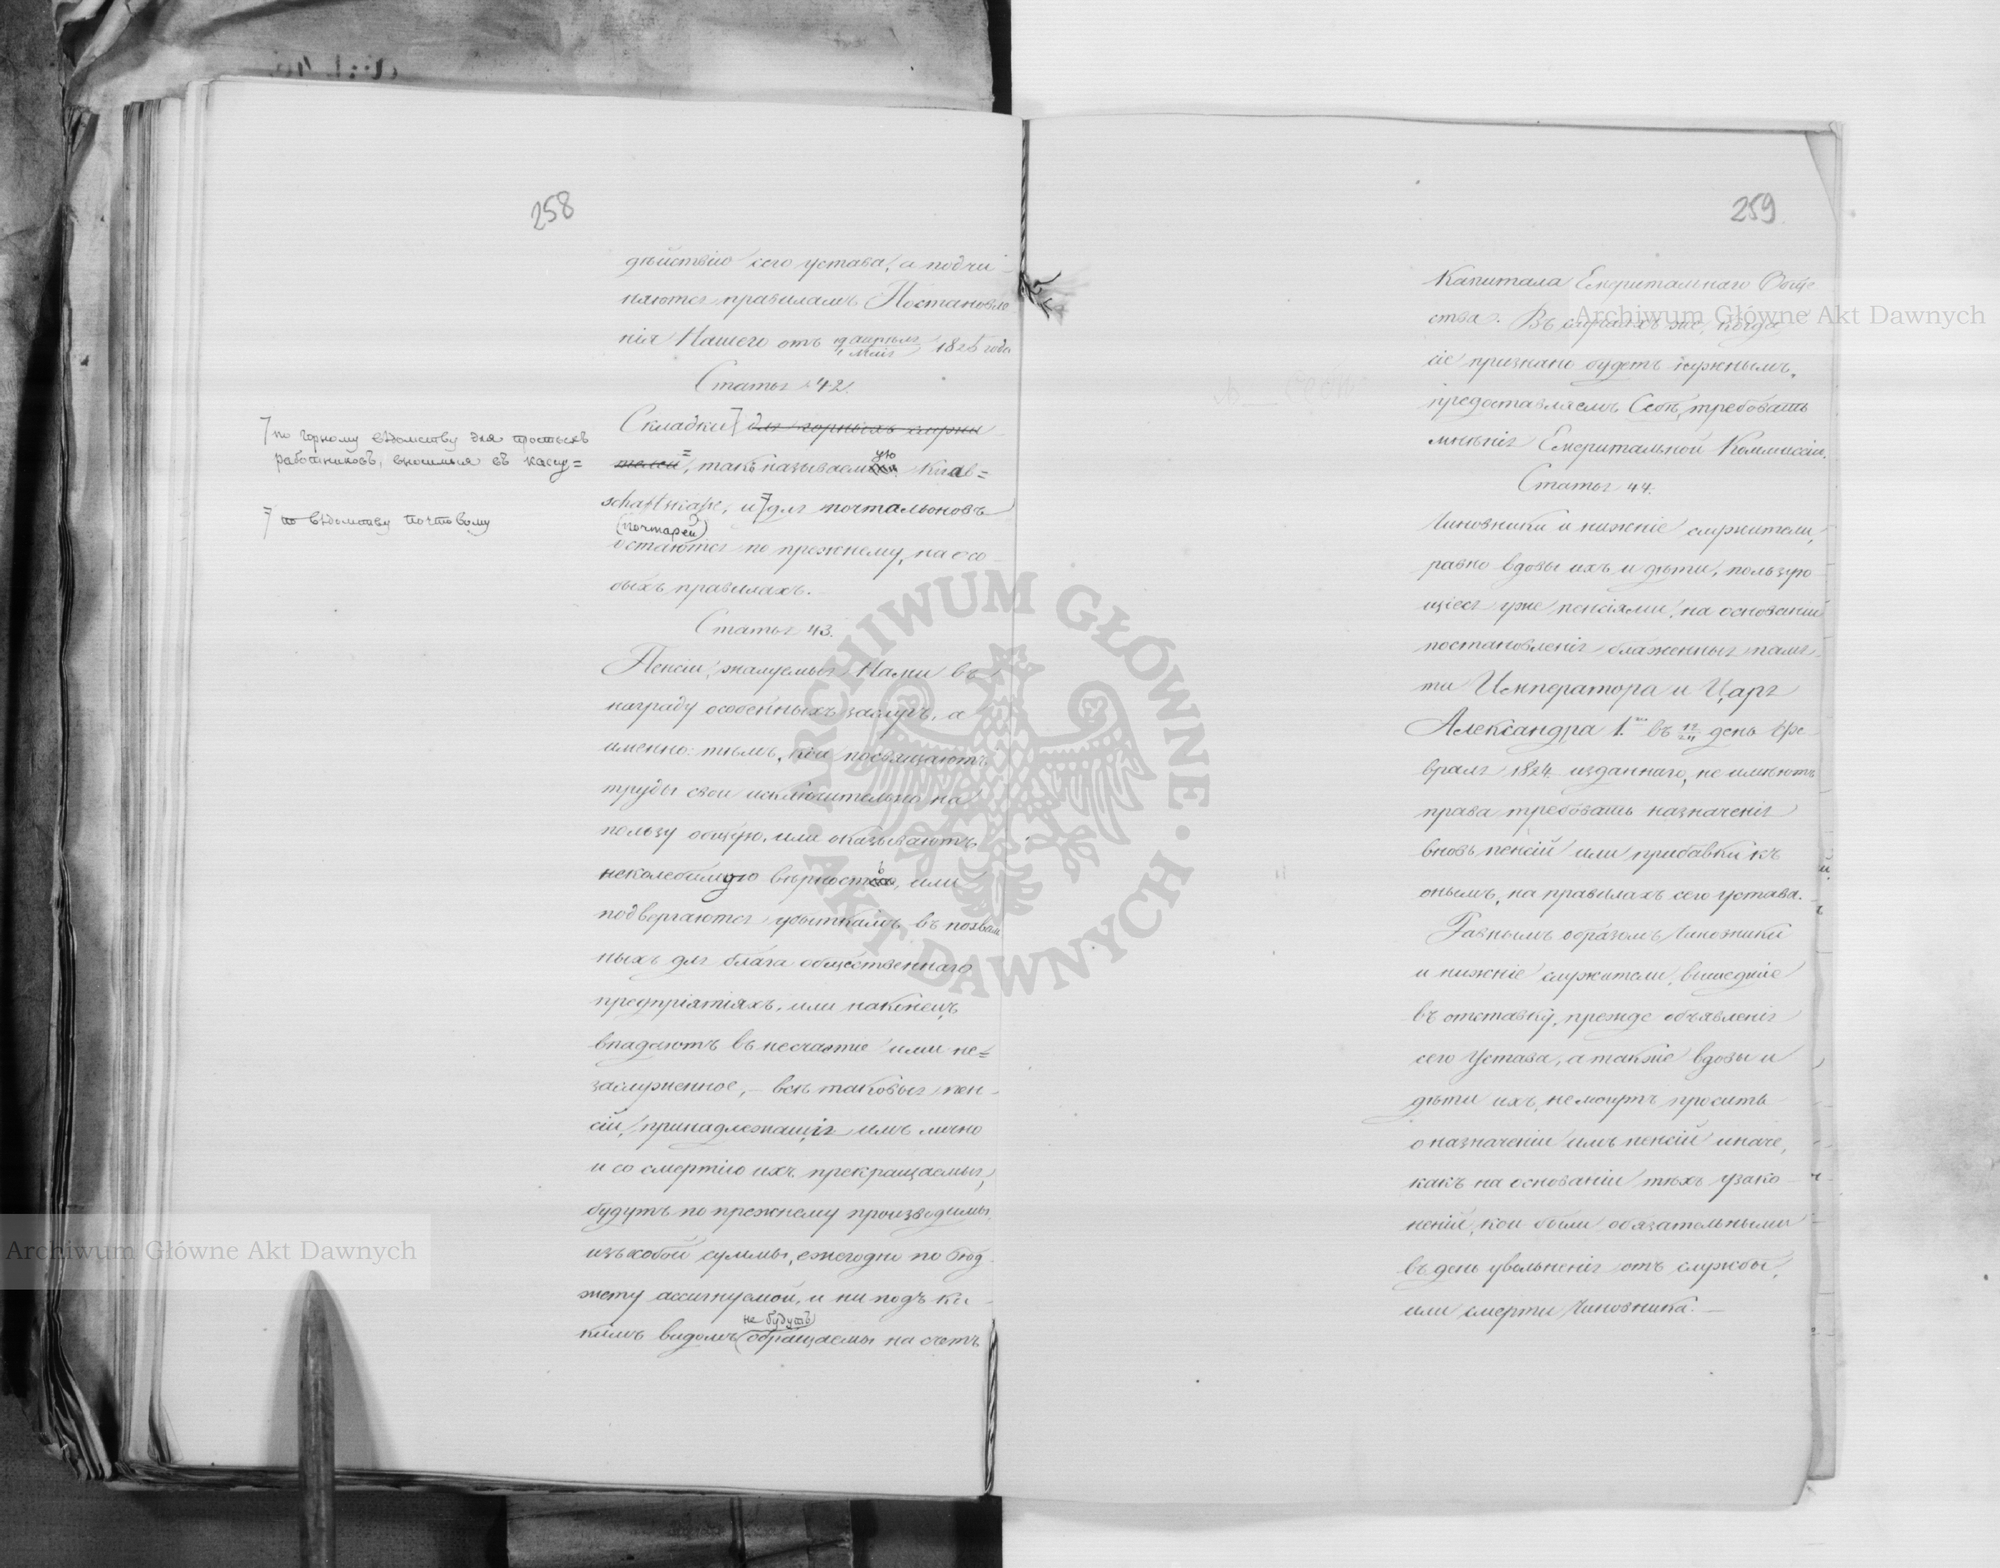 258
дѣйствію сего устава, а подчи-
няются правиламъ Постановле
нія Нашего отъ 19 Апрѣля / 1 Маія 1825 года
Статья 42.
Складки ⁊ для горныхъ служи
телей=, такъ называемую Knap=
schaftskasse, и ⁊ для почтальоновъ
(почтарей)
остаются по прежнему, на осо-
быхъ правилахъ.
⁊ по горному вѣдомству для простыхъ
работниковъ, вносимыя въ кассу=
⁊ по вѣдомству почтовому
Статья 43.
Пенсіи, жалуемыя Нами въ
награду особенныхъ заслугъ, а
именно: тѣмъ, кои посвящаютъ
труды свои исключительно на
пользу общую, или оказываютъ
неколебимую вѣрность, или
подвергаются убыткамъ въ похваль
ныхъ для блага общественнаго
предпріятіяхъ, или наконецъ
впадаютъ въ несчастіе ими не=
заслуженное, – всѣ таковыя пен-
сіи, принадлежащія имъ лично
и со смертію ихъ прекращаемыя,
будутъ по прежнему производимы
изъ особой суммы, ежегодно по бюд-
жету ассигнуемой, и ни подъ ка-
не будутъ
кимъ видомъ (обращаемы на счетъ
259
Капитала Емеритальнаго Обще
ства. Въ случаяхъ же, когда
сіе признано будетъ нужнымъ,
предоставляемъ Себѣ, требовать
мнѣнія Емеритальной Коммиссіи.
Статья 44.
Чиновники и нижніе служители,
равно вдовы ихъ и дѣти, пользую-
щіеся уже пенсіями, на основаніи
постановленія блаженныя памя-
ти Императора и Царя
Александра 1.го въ 12/24 день Фе-
враля 1824 изданнаго, не имѣютъ
права требовать назначенія
вновь пенсій или прибавки къ
онымъ, на правилахъ сего устава.
Равнымъ образомъ Чиновники
и нижніе служители, вышедшіе
въ отставку, прежде объявленія
сего Устава, а также вдовы и
дѣти ихъ, не могутъ просить
о назначеніи имъ пенсій иначе,
какъ на основаніи тѣхъ узако-
неній, кои были обязательными
въ день увольненія отъ службы,
или смерти Чиновника. –
Archiwum Główne Akt Dawnych
Archiwum Główne Akt Dawnych
ARCHIWUM GŁÓWNE · AKT DAWNYCH ·